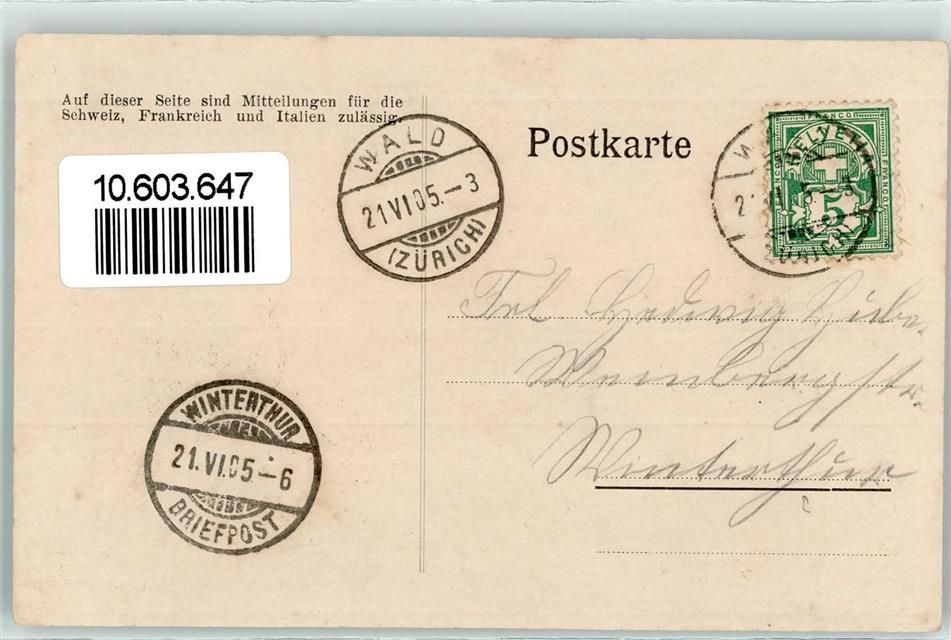 Auf dieser Seite sind Mitteilungen für die
Schweiz, Frankreich und Italien zulässig.
Postkarte
10.603.647
WALD
21 VI 05.–3
(ZÜRICH)
FRANCO
HELVETIA
FRANCO
5
Frl Hedwig
Weinbergstr.
Winterthur
WINTERTHUR
21.VI.05.–6
BRIEFPOST